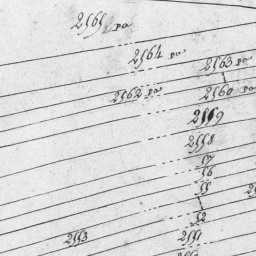 2565 do
2564 do
2563 do
2562 do
2560 do
2559
2558
57
56
55
52
2553
2551